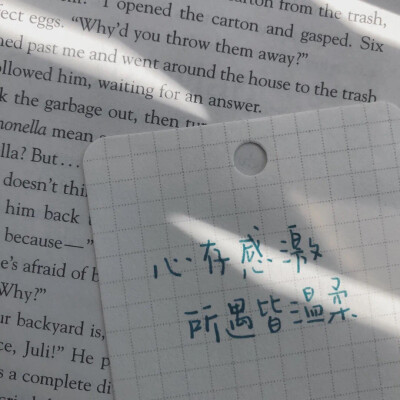 I opened the carton and gasped. Six
"Why'd you throw them away?"
past me and went around the house to the trash
ollowed him, waiting for an answer.
the garbage out, then
monella mean
lla? But...
doesn't
him back
because—"
e's afraid of
Why?"
ur backyard is,
ce, Juli!" He
s a complete
心存感激
所遇皆温柔